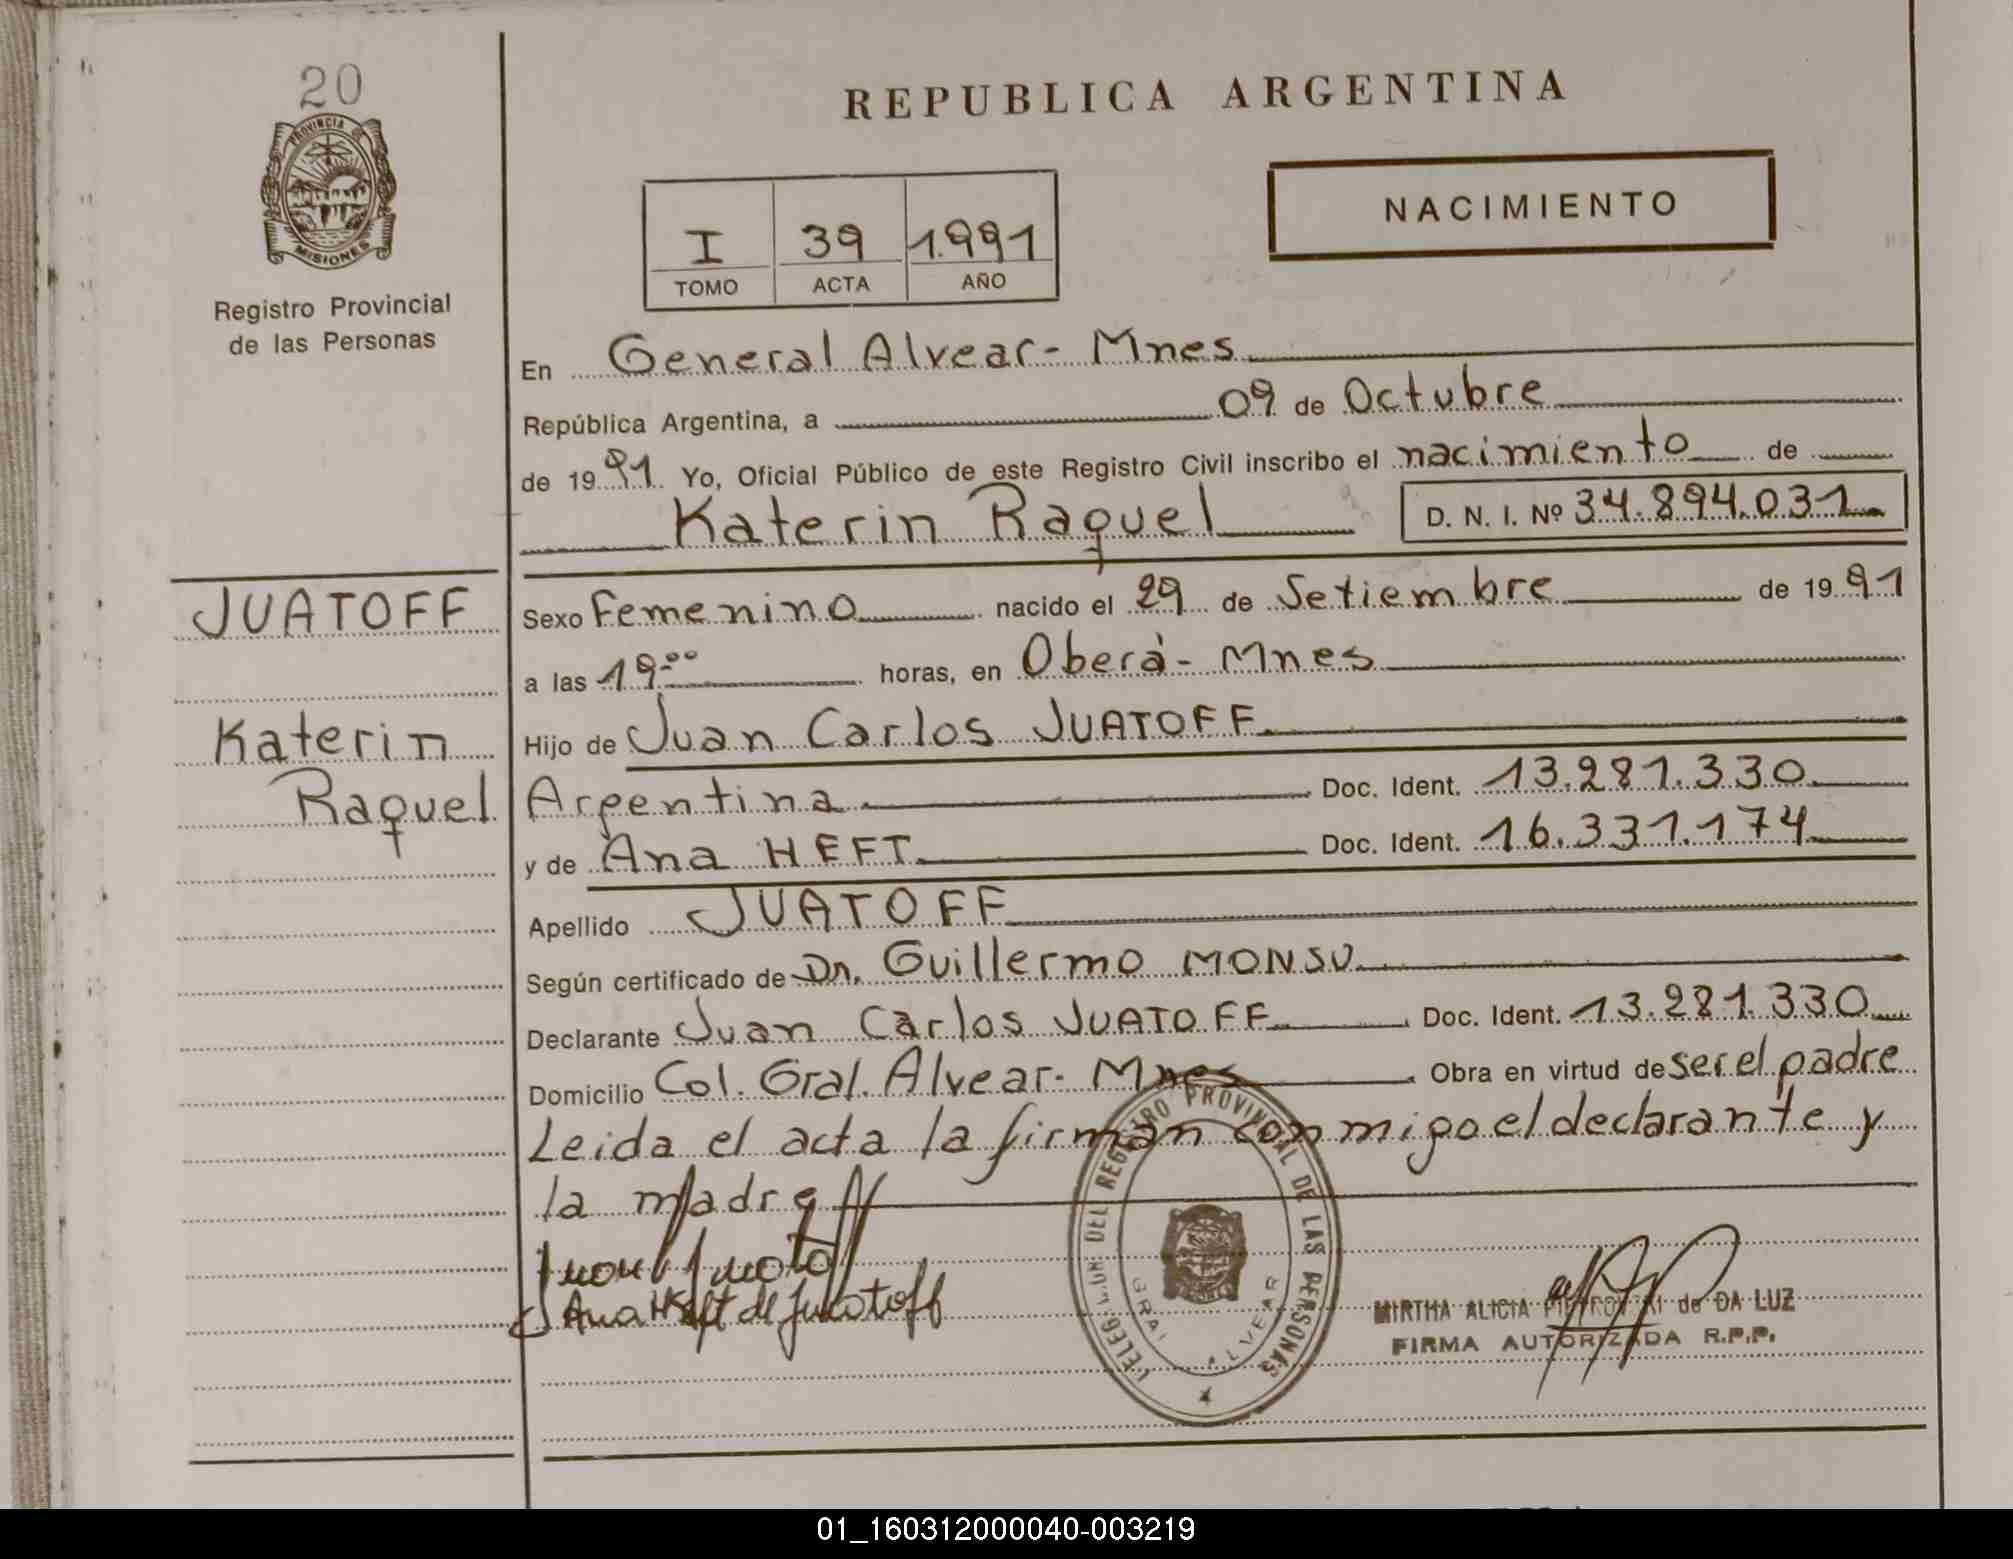 20
PROVINCIA DE
MISIONES
Registro Provincial
de las Personas
REPUBLICA ARGENTINA
I 39 1.991
TOMO ACTA AÑO
NACIMIENTO
En General Alvear - Mnes
República Argentina, a 09 de Octubre
de 1991 Yo, Oficial Público de este Registro Civil inscribo el nacimiento de
Katerin Raquel D. N. I. Nº 34.894.031
JUATOFF
Katerin
Raquel
Sexo Femenino nacido el 29 de Setiembre de 1991
a las 19.00 horas, en Oberá - Mnes
Hijo de Juan Carlos JUATOFF
Argentina Doc. Ident. 13.281.330
y de Ana HEFT Doc. Ident. 16.331.174
Apellido JUATOFF
Según certificado de Dr. Guillermo MONSU
Declarante Juan Carlos JUATOFF Doc. Ident. 13.281.330
Domicilio Col. Gral. Alvear - Mnes Obra en virtud de ser el padre
Leida el acta la firman conmigo el declarante y
la madre
Ana Heft de Juatoff
DEL REGISTRO PROVINCIAL DE LAS PERSONAS
GRAL ALVEAR
MIRTHA ALICIA de DA LUZ
FIRMA AUTORIZADA R.P.P.
01_160312000040-003219